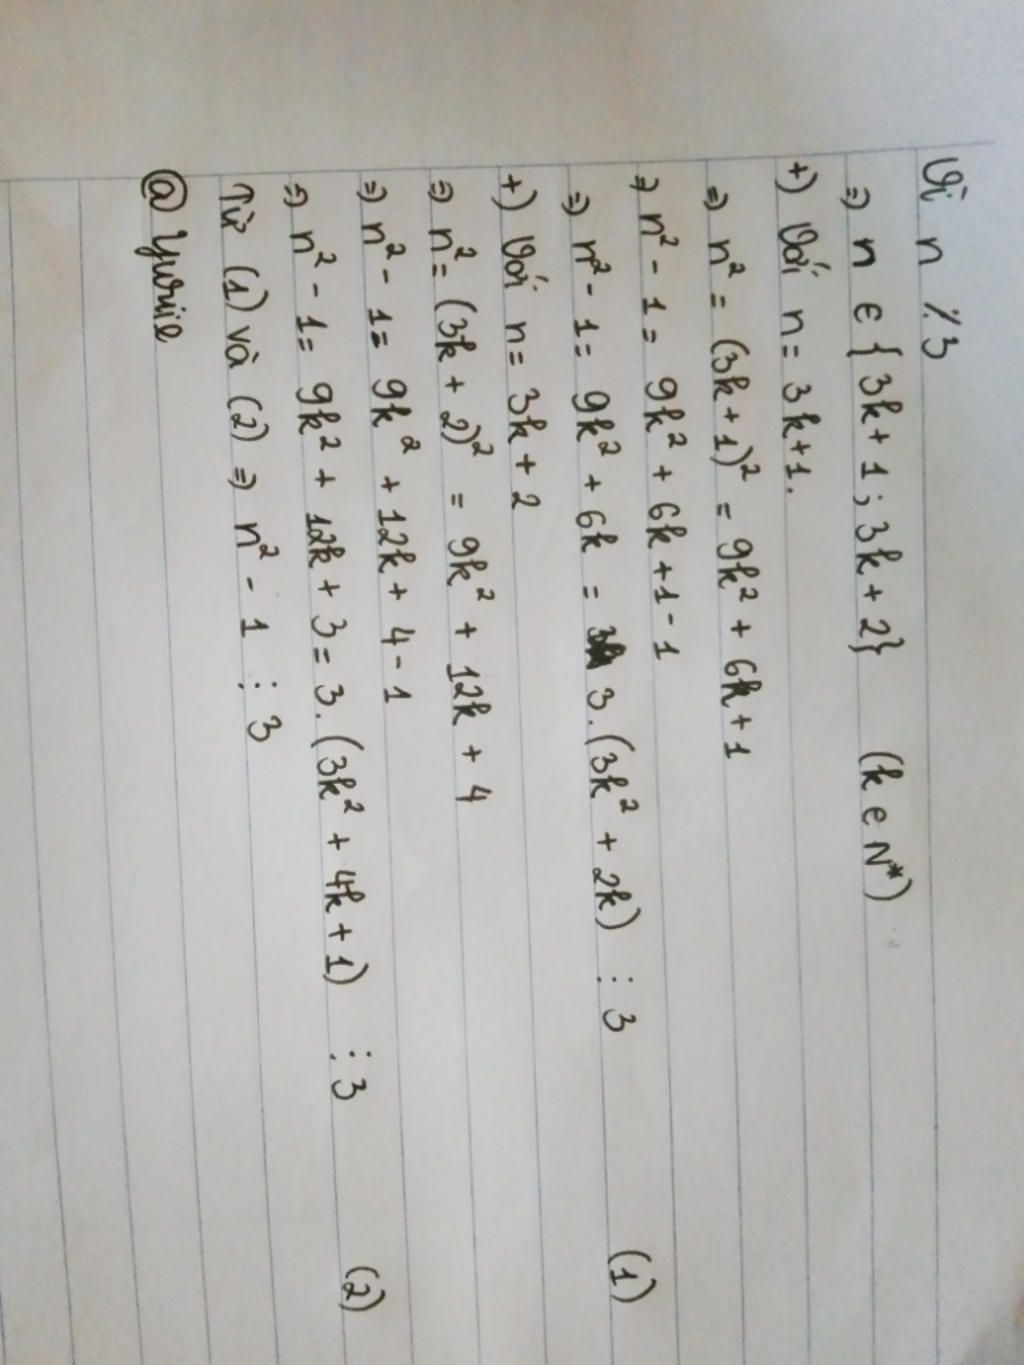 Vì n ⋮̸ 3
=) n ∈ {3k+1; 3k+2} (k ∈ N*)
+) Với n = 3k+1.
=) n² = (3k+1)² = 9k² + 6k+1
=) n² - 1 = 9k² + 6k+1-1
=) n² - 1 = 9k² + 6k = 3.(3k² + 2k) ⋮ 3 (1)
+) Với n = 3k+2
=) n² = (3k+2)² = 9k² + 12k + 4
=) n² - 1 = 9k² + 12k + 4 - 1
=) n² - 1 = 9k² + 12k + 3 = 3.(3k² + 4k + 1) ⋮ 3 (2)
Từ (1) và (2) =) n² - 1 ⋮ 3
@Yurrie